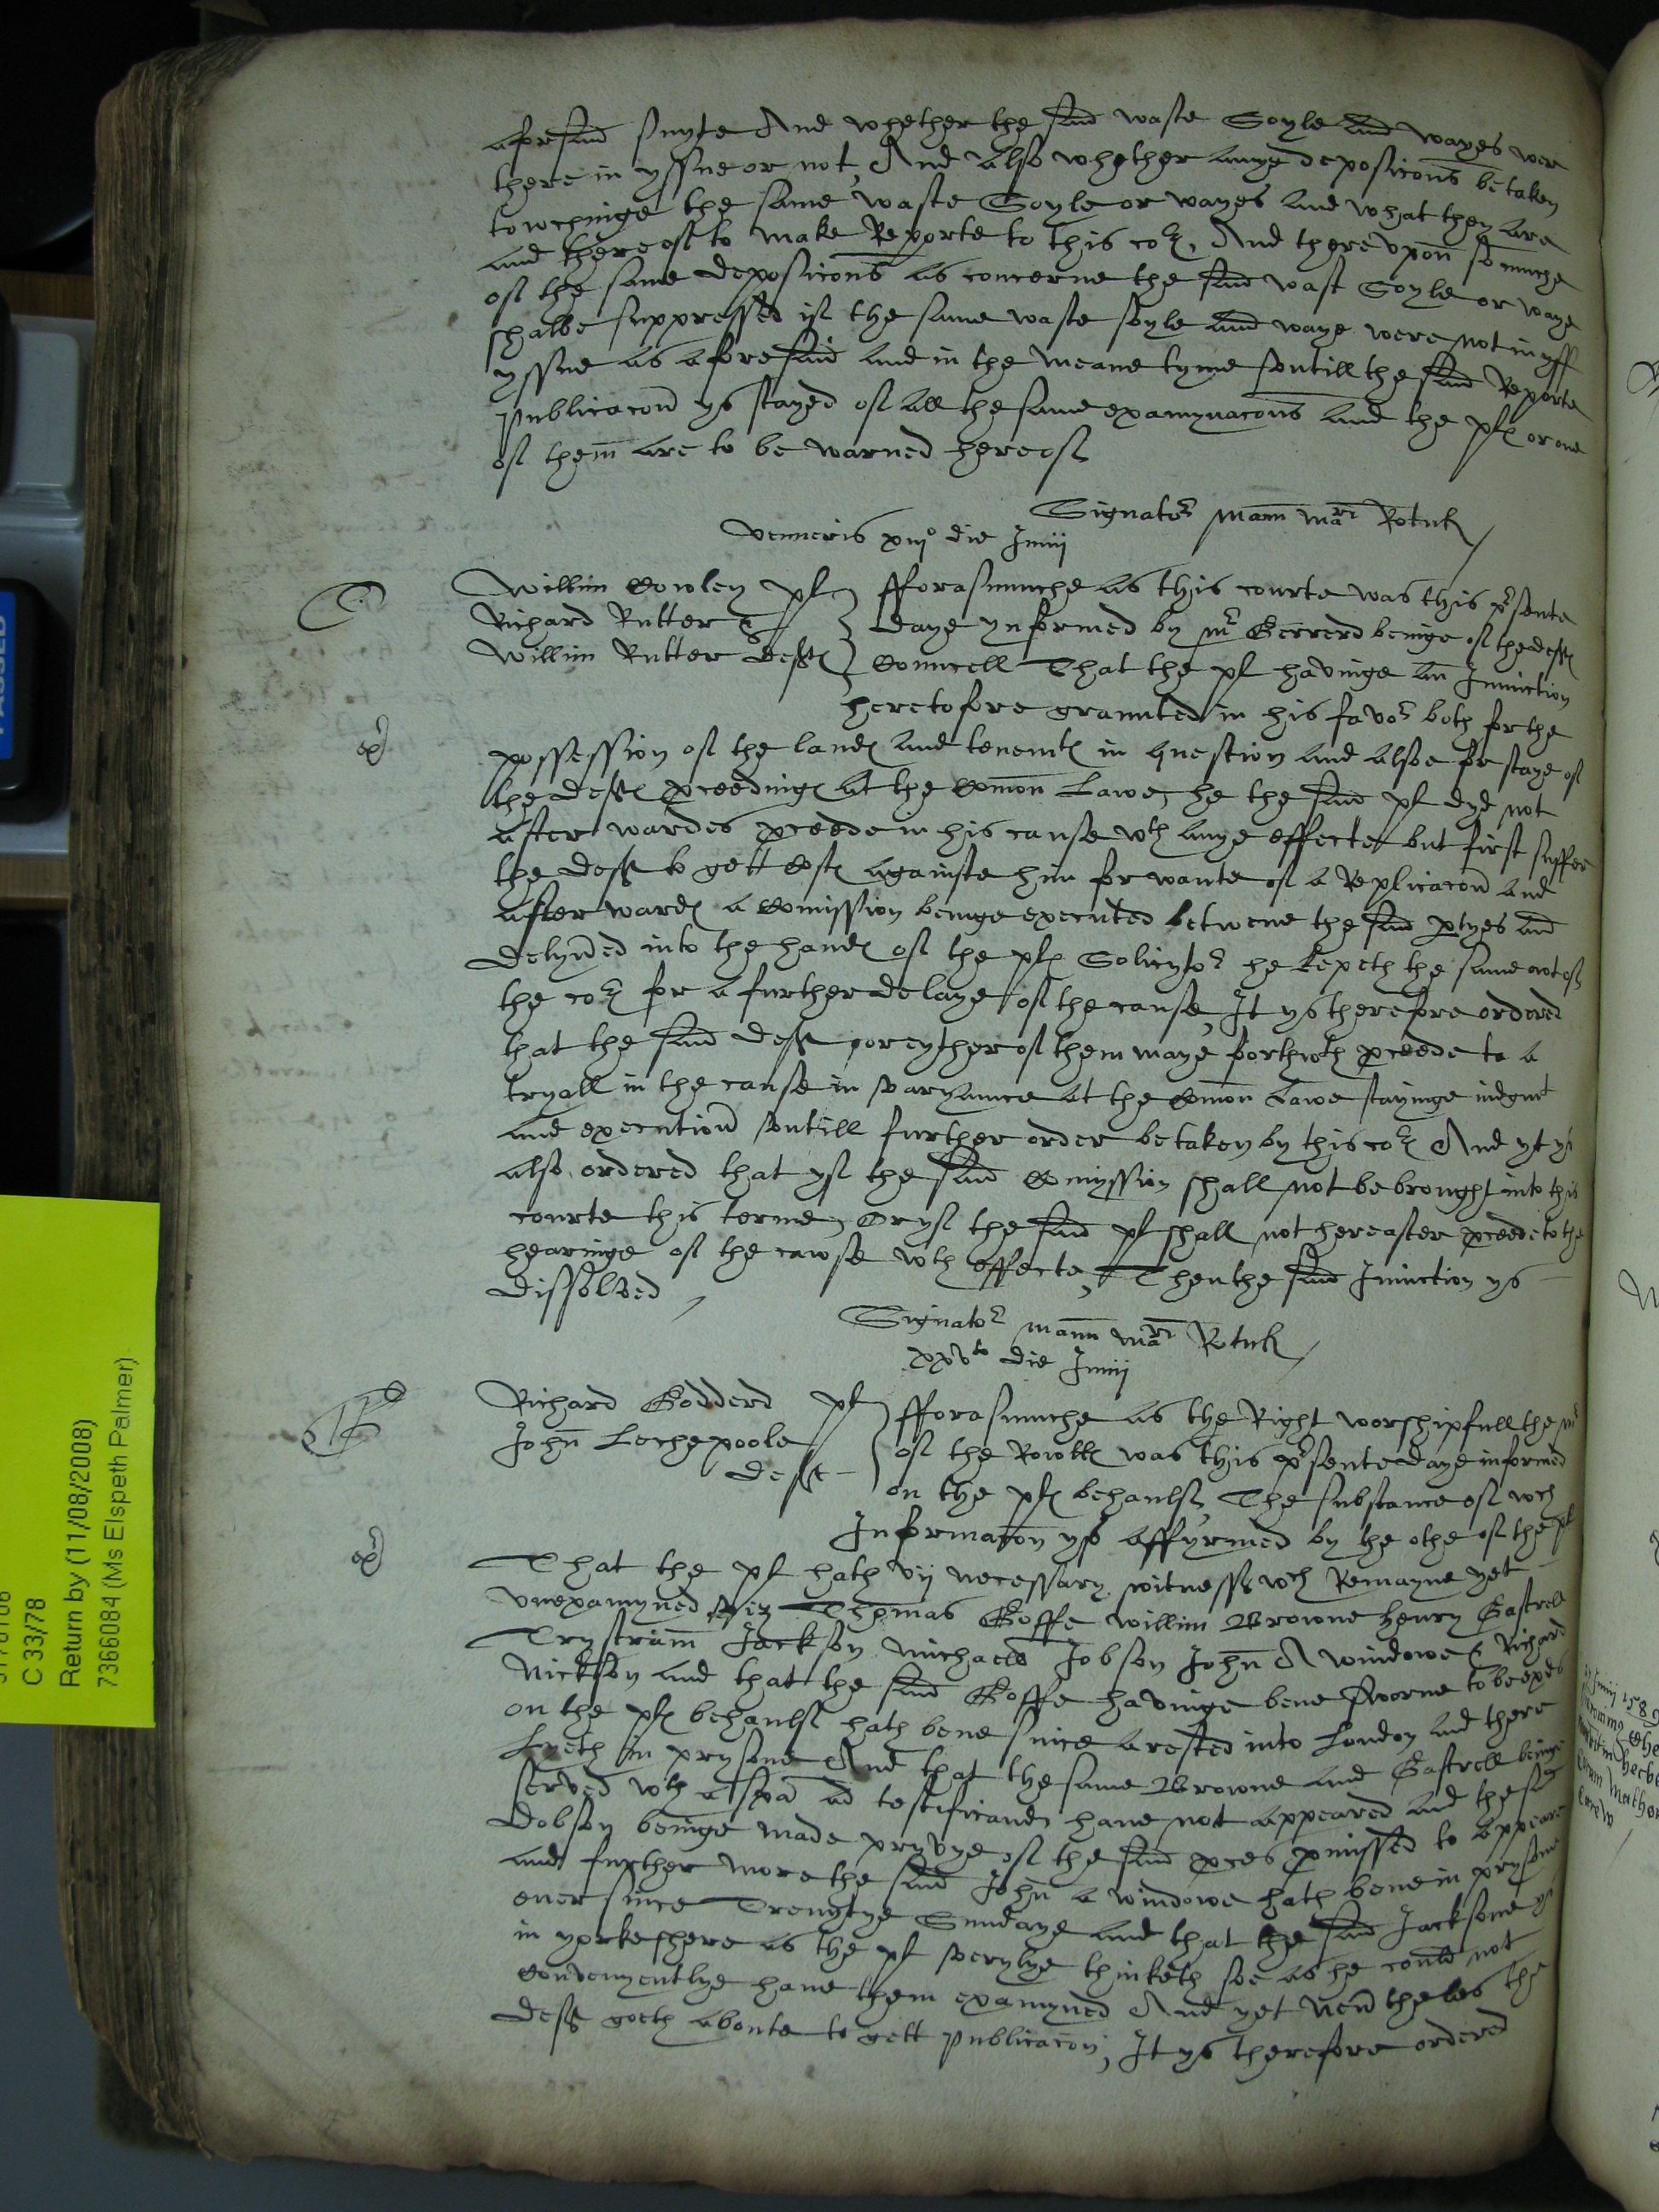 aforsaid suyte And whether the said waste Soyle and wayes wer
there in yssue or not, And also whether anye deposicons be taken
towchinge the same waste Soyle or wayes and what they are
and thereof to make Reporte to this cot, And there vpon so muche
of the same deposicons as concerne the said wast Soyle or waye
shalbe suppressed if the same waste soyle and waye were not in yss
yssue as aforesaid and in the meane tyme vntill the said Reporte
publicacon ys stayed of all the same examynacons and the pls or one
of them are to be warned hereof
Signator manu mri Rotul
veneris xiijo die Junij
Willim Cowley pl
Richard Rutter &
Willim Rutter defts
fforasmuche as this courte was this prsente
daye ynformed by mr Gerrerd beinge of the defts
Councell That the pl havinge an Iniunction
heretofore graunted in his favor both for the
possession of the lands and tenemts in question and alsoe for staye of
the defts pceedings at the Comon Lawe, he the said pl dyd not
afterwardes pceede in his cause wth anye effecte but first suffer
the deft to gett Costs againste him for wante of a Replicacon and
afterwards a Comission beinge executed betwene the said ptyes and
delyvred into the hands of the pls Solicytor he kepeth the same out of
the cot for a further delaye of the cause, It ys therefore ordered
that the said defts or eyther of them maye forthwth pceede to a
tryall in the cause in varyaunce at the Comon Lawe stayinge iudgmt
and execution vntill further order be taken by this cot And yt ys
also ordered that yf the said Comyssion shall not be brought into this
courte this terme, Or yf the said pl shall not hereafter pceede to the
hearinge of the cawse wth effecte, Then the said Iniunction ys
dissolved
Signator manu mri Rotul
xxvto die Junij
Richard Godderd pl
John Lechepoole
deft
fforasmuche as the Right worshipfull the mr
of the Rowlls was this prsente daye informed
on the pls behaulf, The substance of wch
Informacon ys affyrmed by the othe of the pl
That the pl hath vij necessary witnesses wch Remayne yet
vnexamyned viz Thomas Goffe willim Browne henry Gastrell
Trystram Jackson michaell Jobson John A windowe & Richard
Nickson and that the said Goffe havinge bene sworne to be exd
on the pls behaulf hath bene since arested into London and there
Lyeth in prysone And that the same Browne and Gastrell beinge
served wth a spa ad testificand have not appeared and the said
Dobson beinge made pryvye of the said pces pmissed to appeare
and further more the said John a windowe hath bene in prysone
ever since Trenytye Sundaye and that the said Jacksone ys
in yorkeshere as the pl verylye thinketh soe as he could not
convenyentlye have them examyned And yet nevrtheles the
deft goeth aboute to gett publicacon, It ys therefore ordered
C 33/78
Return by (11/08/2008)
7366084 (Ms Elspeth Palmer)